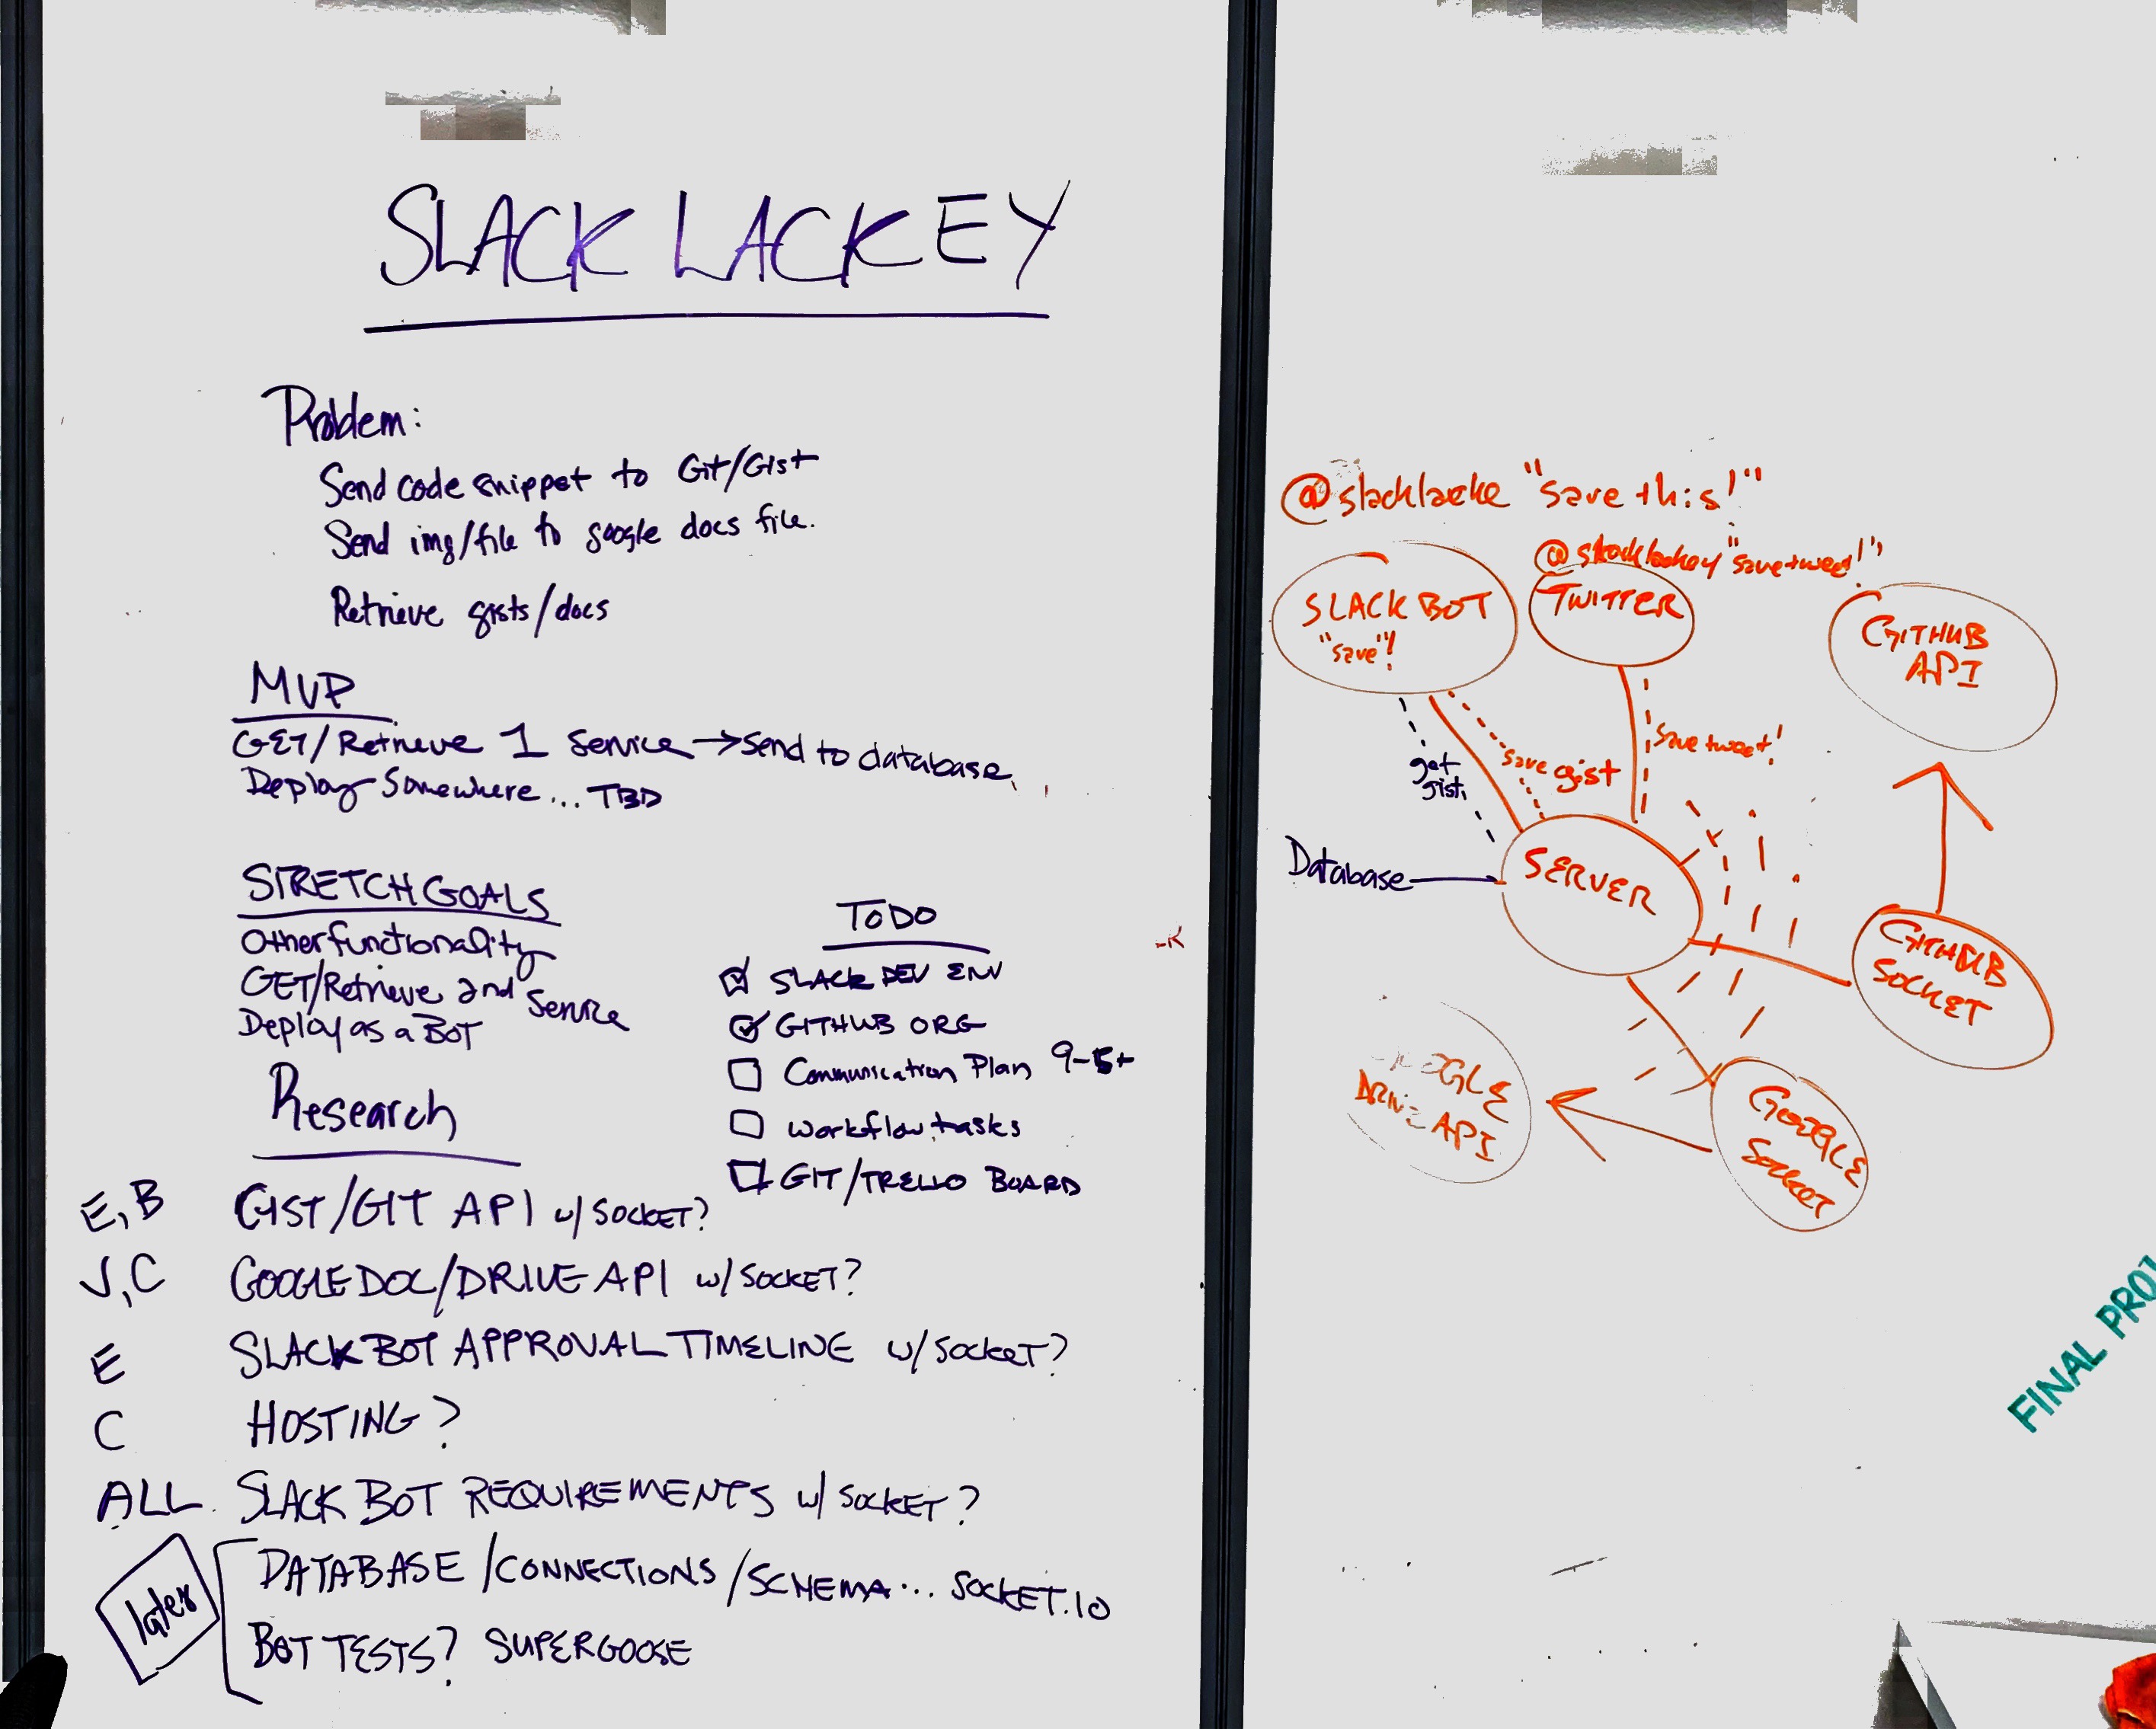 SLACK LACKEY
Problem:
Send code snippet to Git/Gist
Send img/file to google docs file.
Retrieve gists/docs
MVP
GET/Retrieve 1 Service → Send to database.
Deploy Somewhere... TBD
STRETCH GOALS
Other functionality
GET/Retrieve 2nd Service
Deploy as a BOT
TODO
SLACK DEV ENV
GITHUB ORG
Communication Plan 9-5+
Workflow tasks
GIT/TRELLO BOARD
Research
E, B GIST/GIT API w/ SOCKET?
J, C GOOGLE DOC/DRIVE API w/ SOCKET?
E SLACK BOT APPROVAL TIMELINE w/ SOCKET?
C HOSTING?
ALL SLACK BOT REQUIREMENTS w/ SOCKET?
later
DATABASE / CONNECTIONS / SCHEMA... SOCKET.IO
BOT TESTS? SUPERGOOSE
@slacklacke "Save this!"
@slacklackey "save tweet!"
SLACK BOT
"save"!
TWITTER
GITHUB
API
get
gist
save gist
save tweet!
Database
SERVER
GITHUB
SOCKET
GOOGLE
DRIVE API
GOOGLE
SOCKET
FINAL PROJ